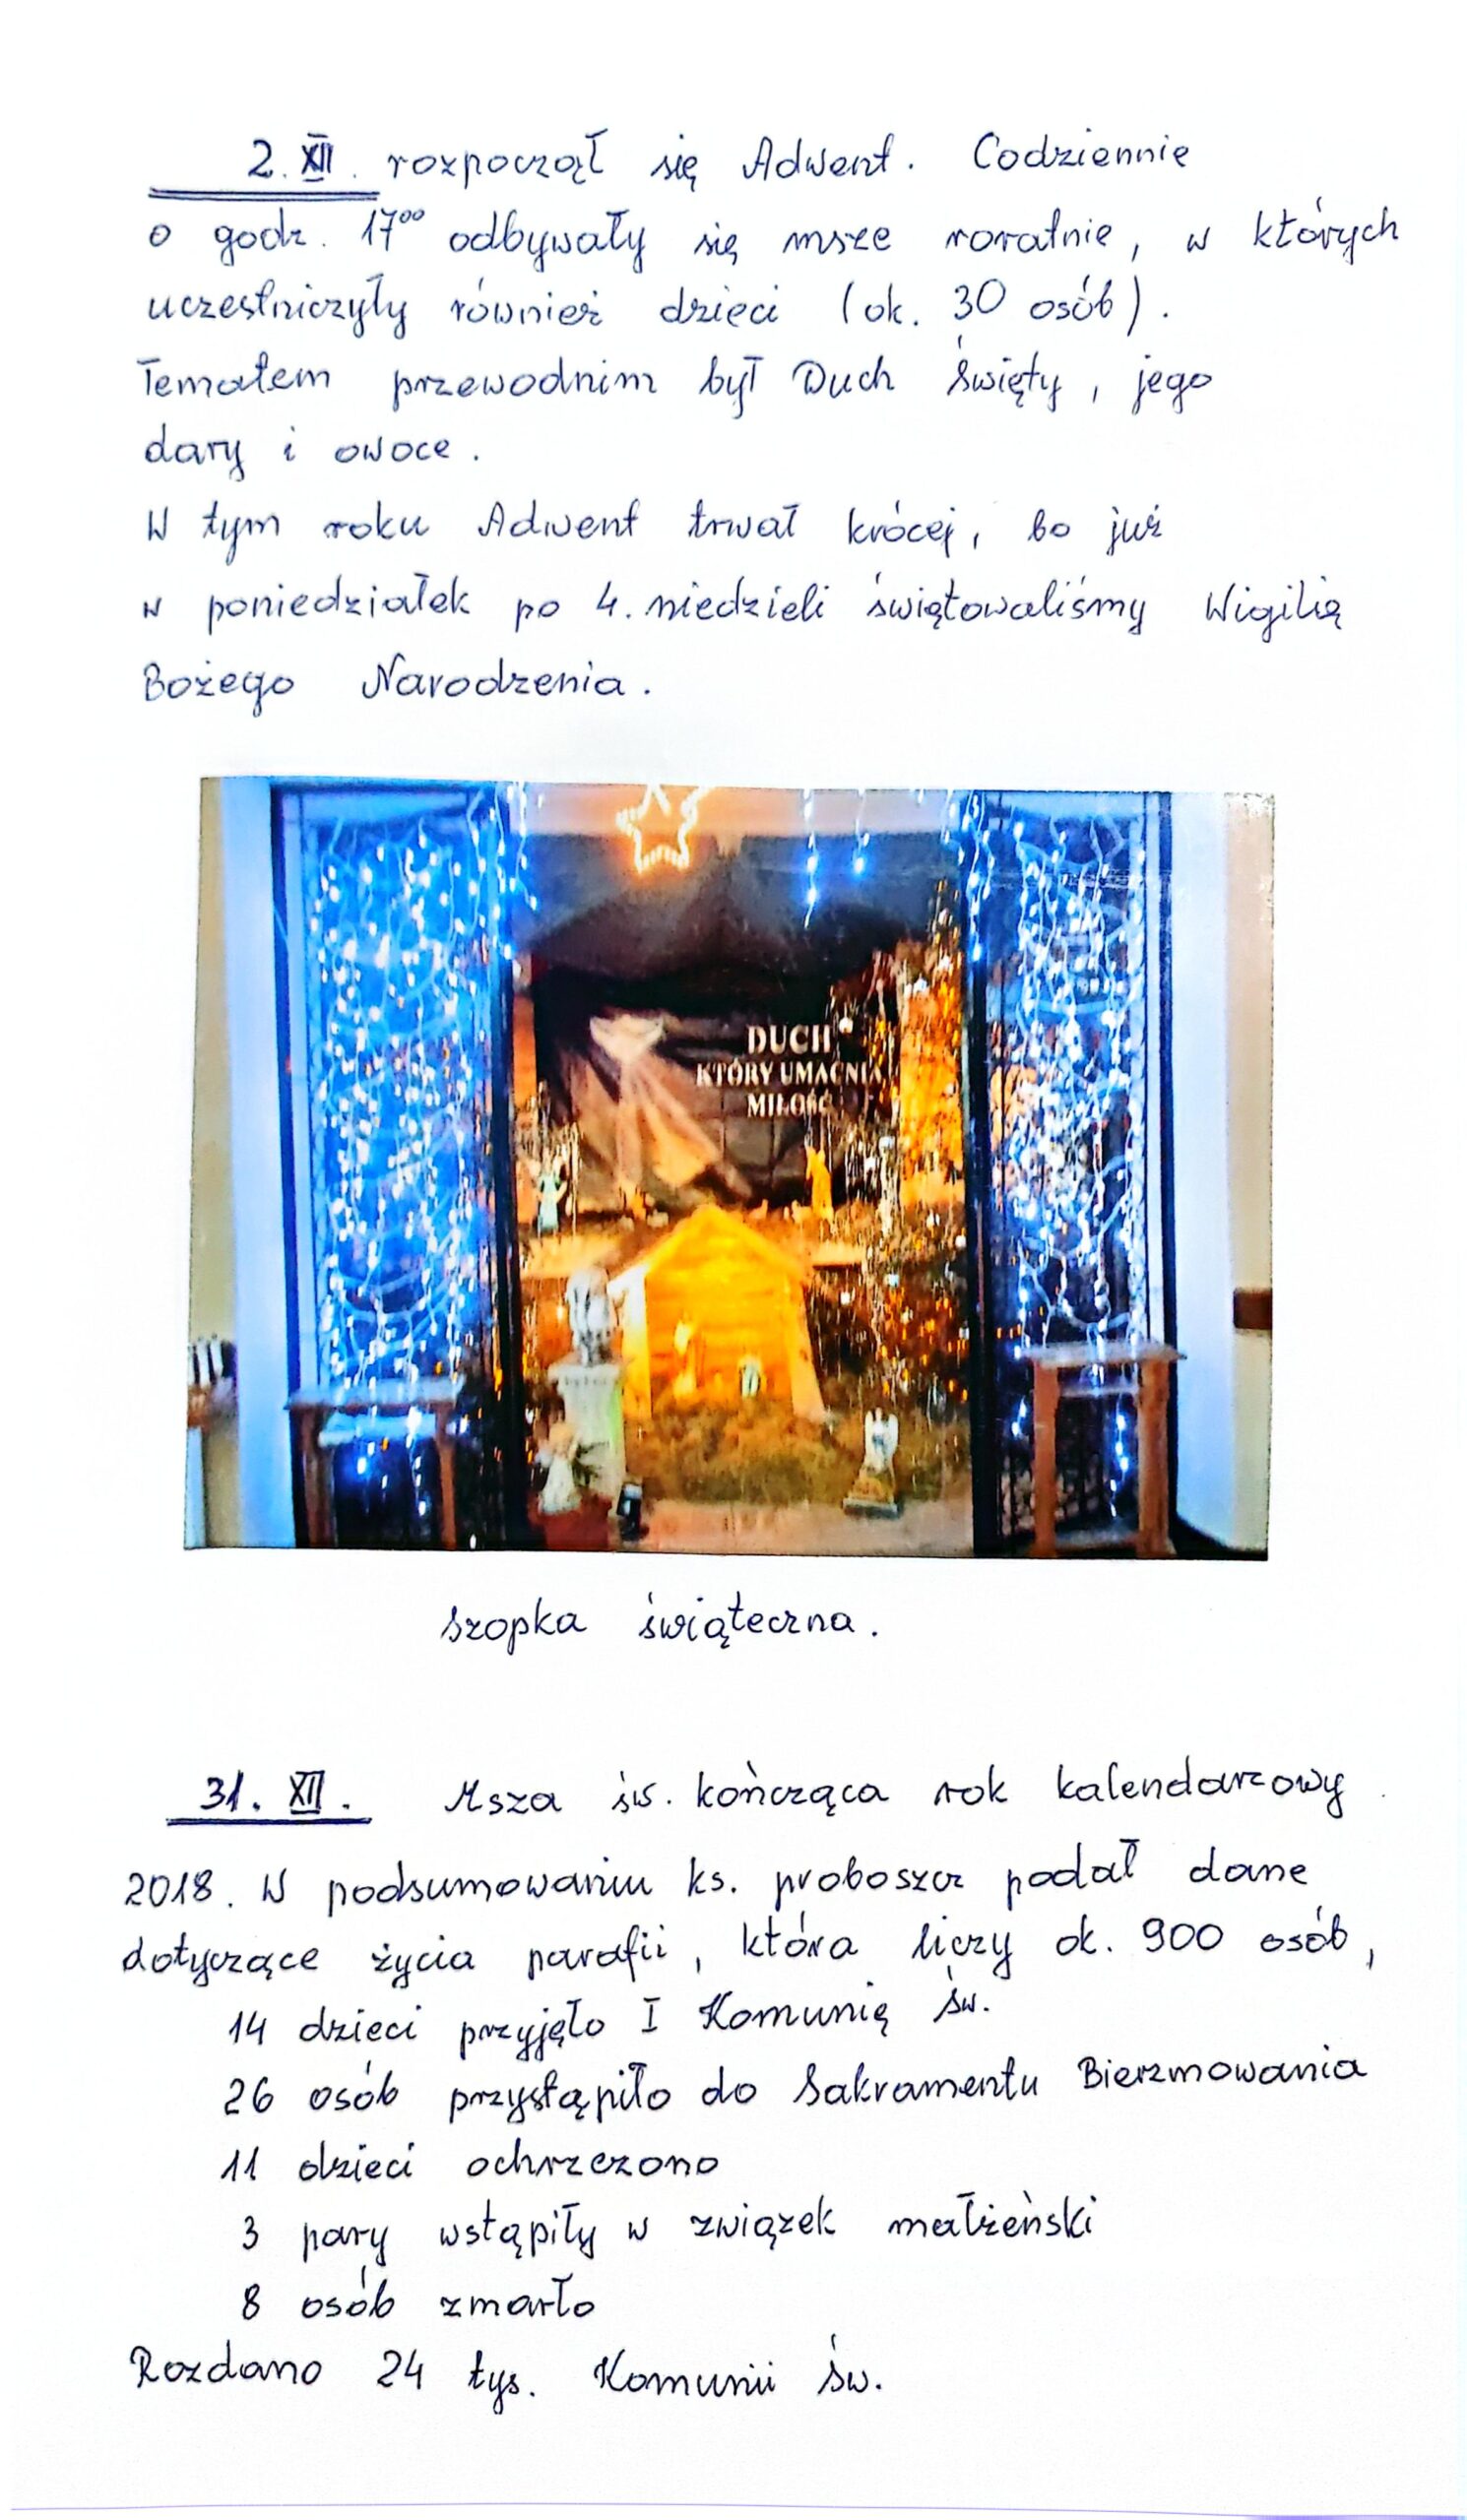 2. XII. rozpoczął się Adwent. Codziennie
o godz. 17⁰⁰ odbywały się msze roratnie, w których
uczestniczyły również dzieci (ok. 30 osób).
Tematem przewodnim był Duch Święty, jego
dary i owoce.
W tym roku Adwent trwał krócej, bo już
w poniedziałek po 4. niedzieli świętowaliśmy Wigilię
Bożego Narodzenia.
DUCH
KTÓRY UMACNIA
MIŁOŚĆ
Szopka świąteczna.
31. XII. Msza św. kończąca rok kalendarzowy
2018. W podsumowaniu ks. proboszcz podał dane
dotyczące życia parafii, która liczy ok. 900 osób,
14 dzieci przyjęło I Komunię Św.
26 osób przystąpiło do Sakramentu Bierzmowania
11 dzieci ochrzczono
3 pary wstąpiły w związek małżeński
8 osób zmarło
Rozdano 24 tys. Komunii Św.